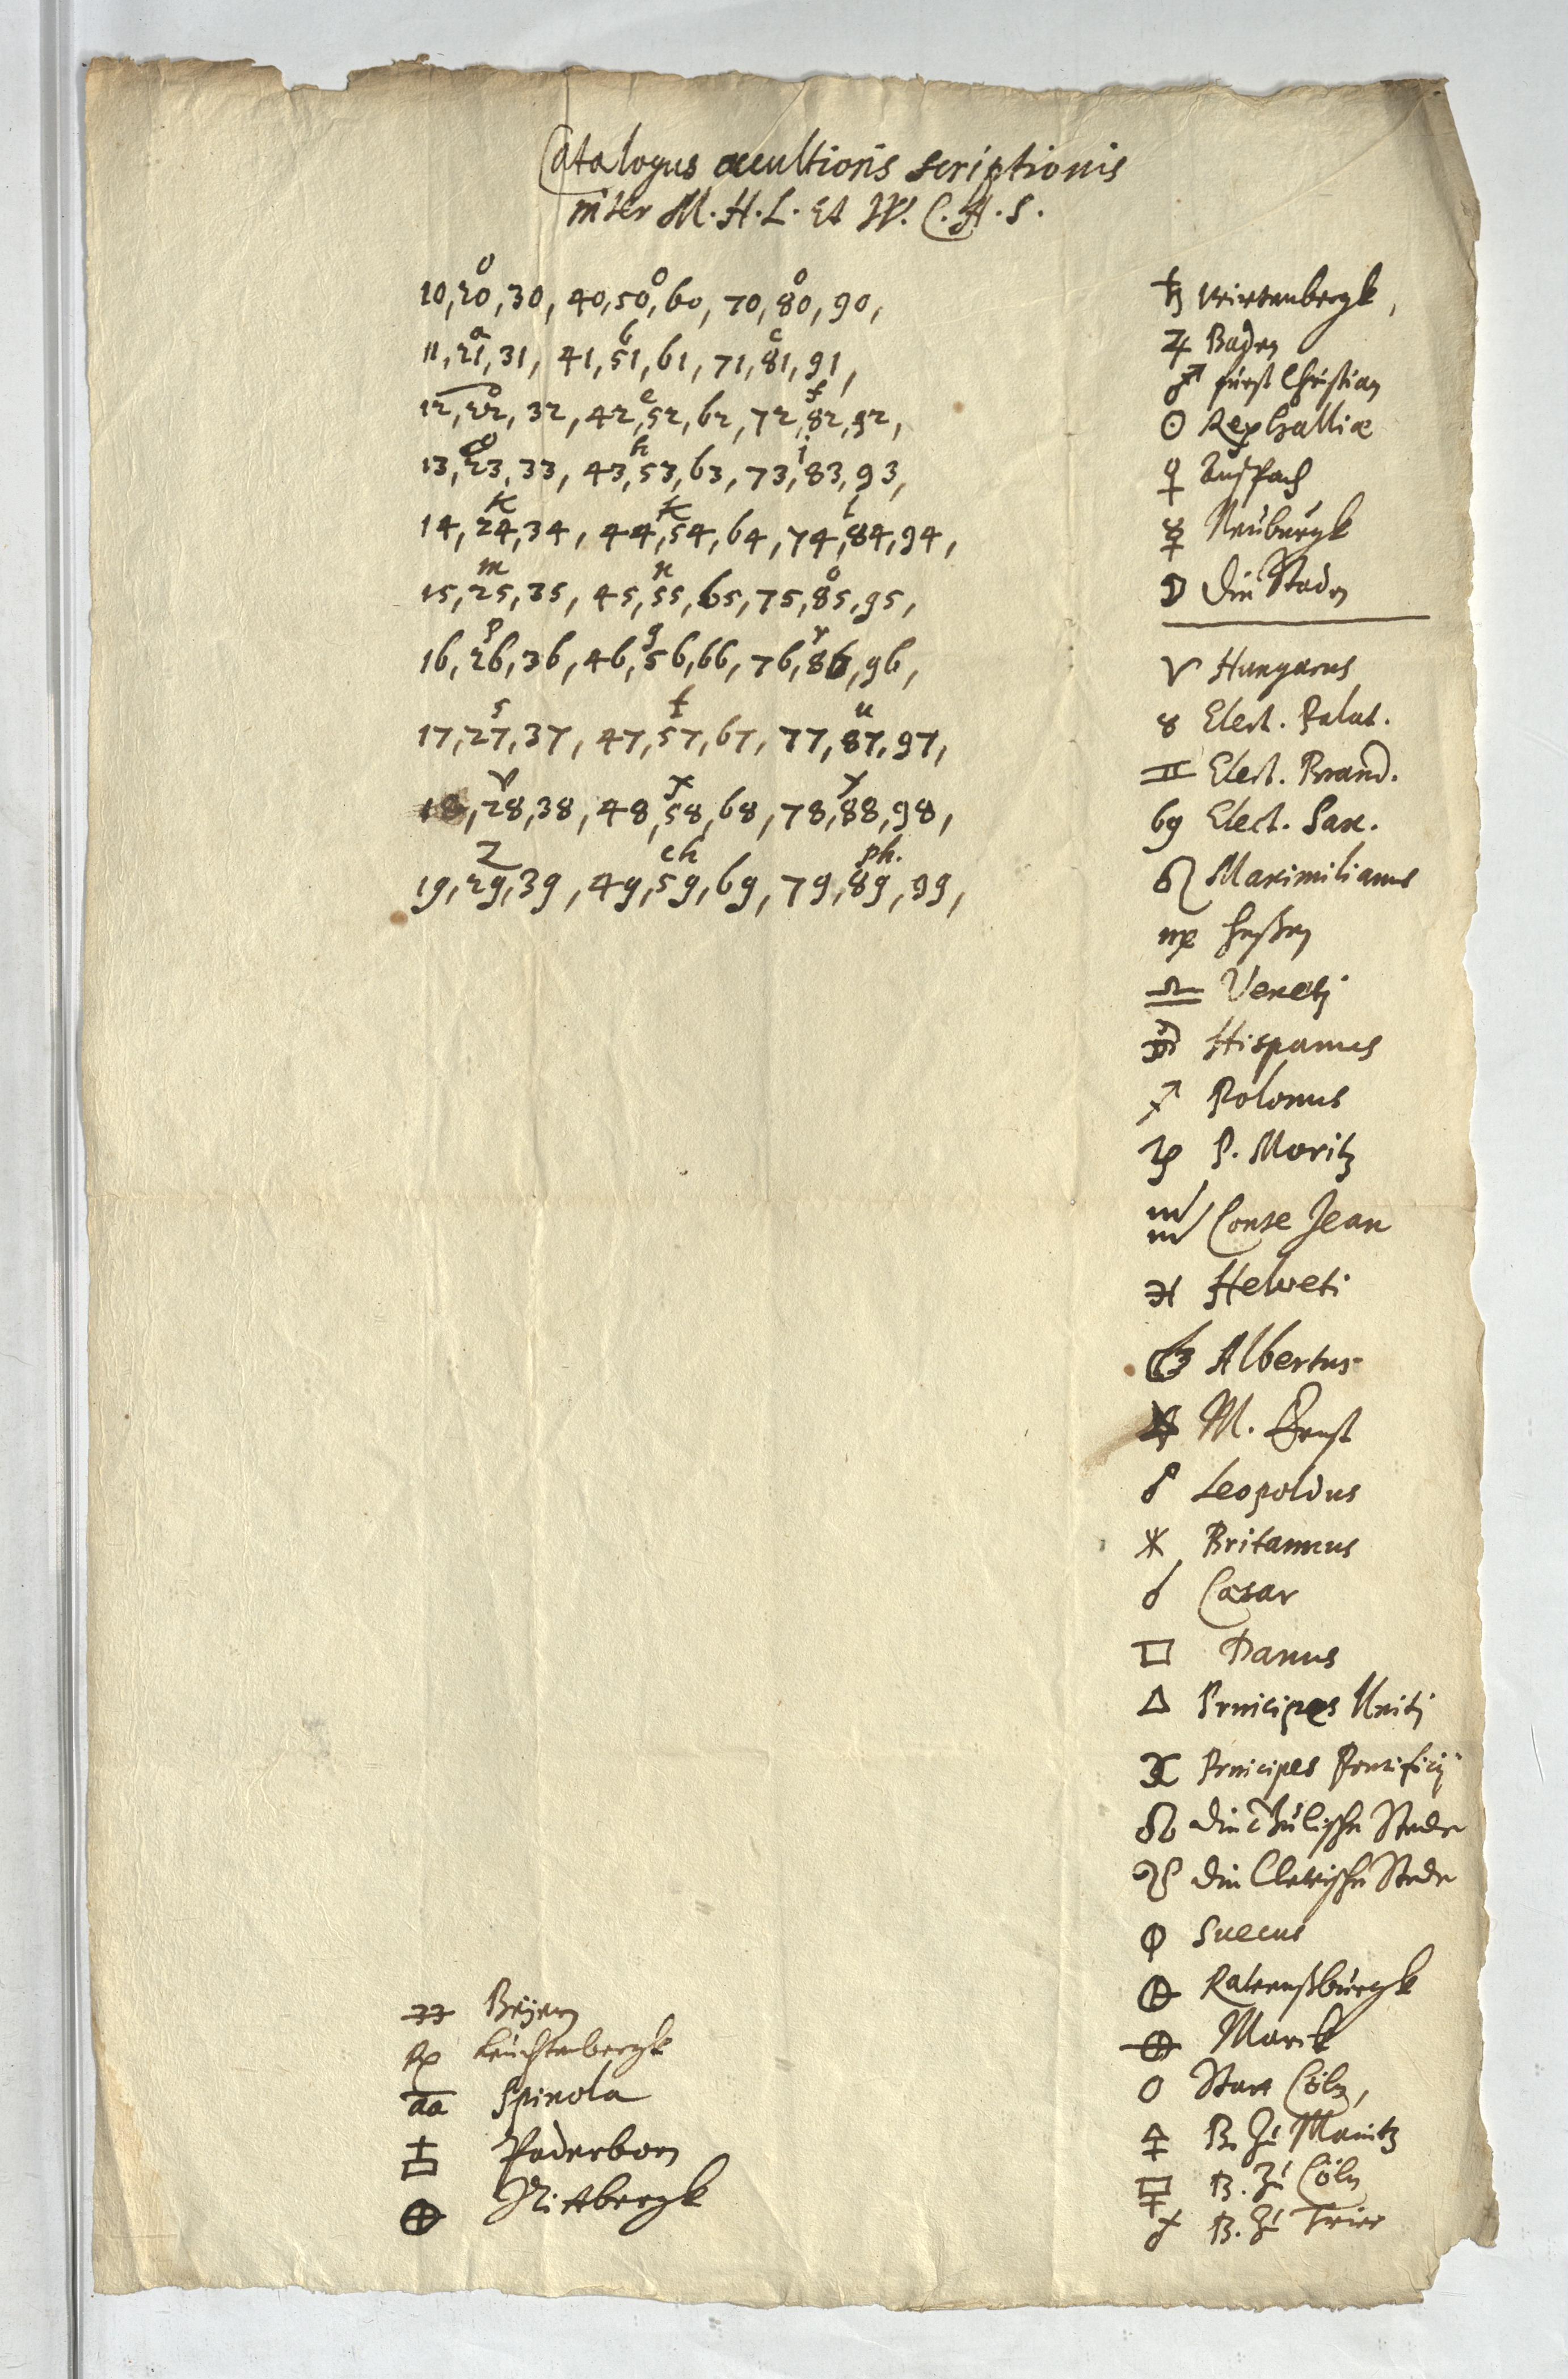 Catalogus occultioris scriptionis
inter M. H. L. et W. C. A. S.
0 0 0
10, 20, 30, 40, 50, 60, 70, 80, 90,
a b c
11, 21, 31, 41, 51, 61, 71, 81, 91,
e f
12, 22, 32, 42, 52, 62, 72, 82, 92,
h i
13, 23, 33, 43, 53, 63, 73, 83, 93,
k k l
14, 24, 34, 44, 54, 64, 74, 84, 94,
m n o
15, 25, 35, 45, 55, 65, 75, 85, 95,
p q r
16, 26, 36, 46, 56, 66, 76, 86, 96,
s t u
17, 27, 37, 47, 57, 67, 77, 87, 97,
v x y
18, 28, 38, 48, 58, 68, 78, 88, 98,
z ch ph.
19, 29, 39, 49, 59, 69, 79, 89, 99,
♄ Wirtenbergk,
♃ Baden
♂ fürst Christian
☉ Rex Galliæ
♀ Anspach
☿ Neuburgk
☽ die Staden
♈ Hungarus
♉ Elect. Palat.
♊ Elect. Brand.
♋ Elect. Sax.
♌ Maximilianus
♍ Hessen
♎ Veneti
Hispanus
♐ Polonus
♑ P. Moritz
♒ Conte Jean
♓ Helveti
Albertus
M. Ernst
Leopoldus
* Britannus
☌ Cæsar
□ Danus
△ Principes Uniti
Principes Pontificij
☊ die Gülische Stede
☋ die Clevische Stede
Suecus
Ravenßburgk
Mark
○ Stat Cöln,
B. zu Maintz
B. zu Cöln
B. zu Trier
Beyern
Leuchtenbergk
aa Spinola
Paderborn
Rittbergk